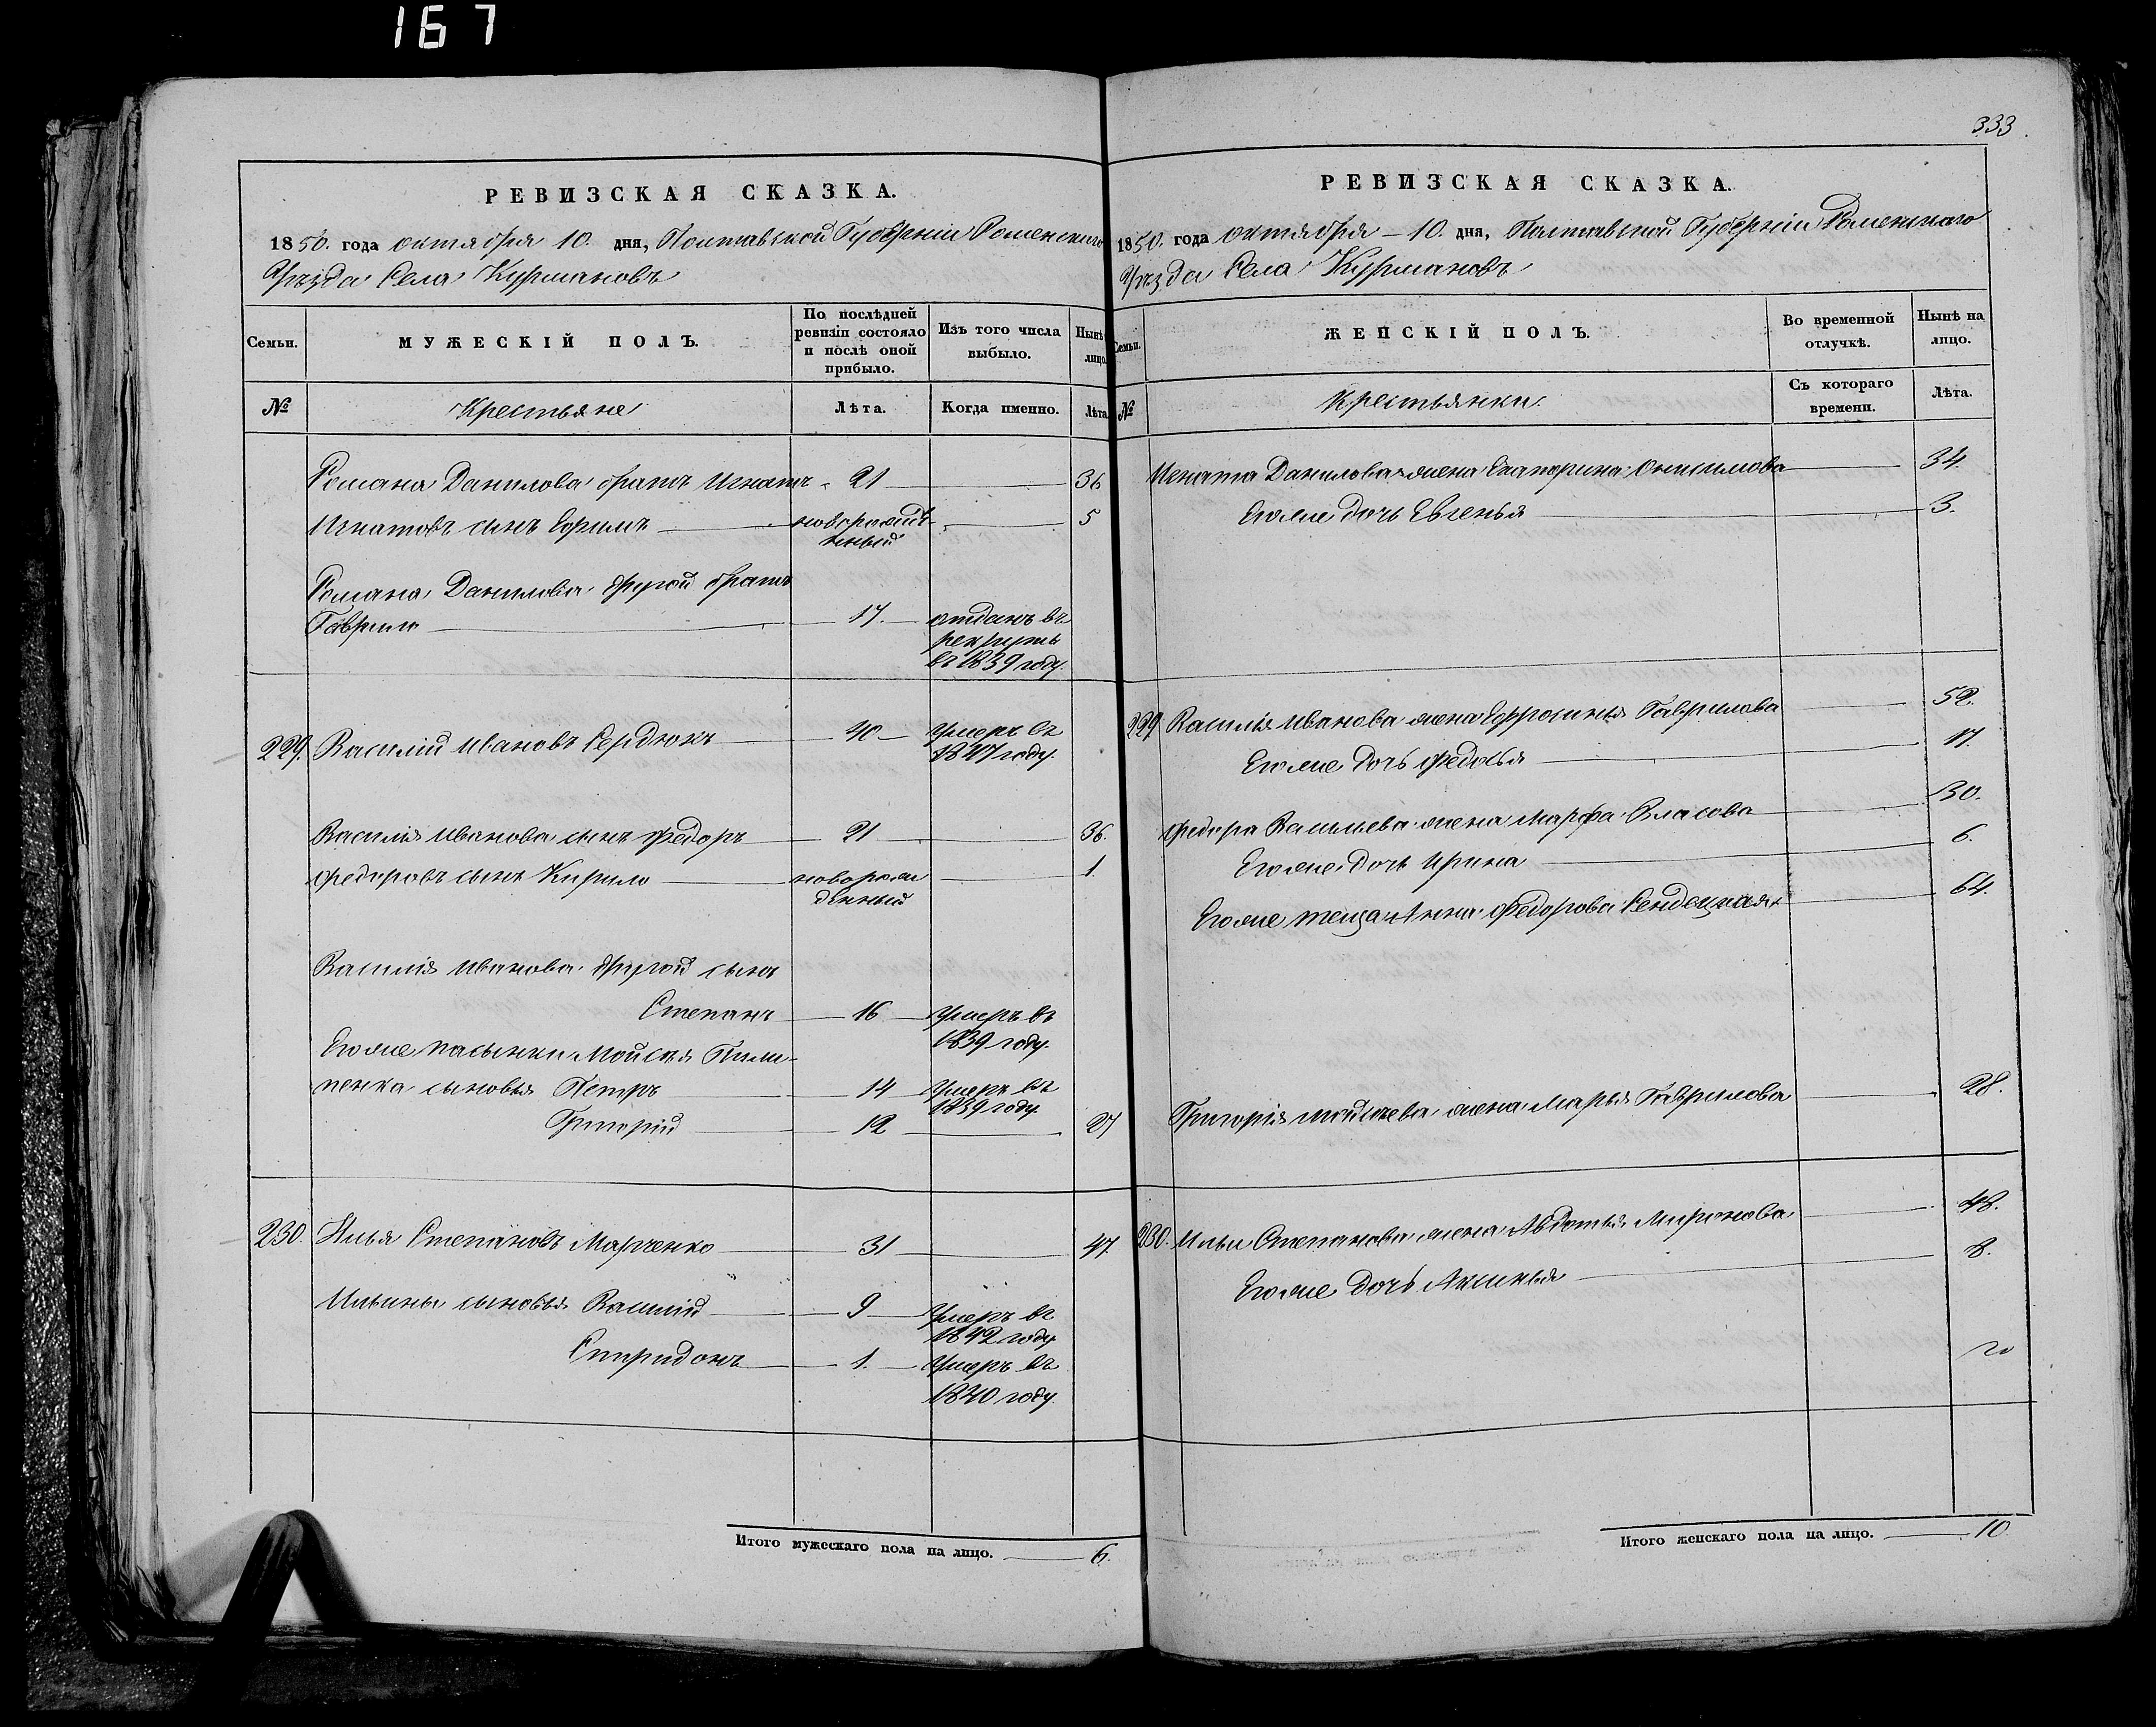 167
РЕВИЗСКАЯ СКАЗКА.
1850. года октября 10. дня, Полтавской Губерніи Роменскаго
Уѣзда Села Курмановъ
Семьи.
МУЖЕСКІЙ ПОЛЪ.
По послѣдней
ревизіи состояло
и послѣ оной
прибыло.
Изъ того числа
выбыло.
Нынѣ
лицо.
№
Крестьяне
Лѣта.
Когда именно.
Лѣта
Романа Данилова братъ Игнатъ 21 36
Игнатовъ сынъ Ефимъ новорожд 5
енный
Романа Данилова другой братъ
Гаврило 17. отданъ въ
рекруты
въ 1839 году.
229. Василій Ивановъ Сердюкъ 40 умеръ въ
1847 году.
Василія Иванова сынъ Федоръ 21 36.
Федоровъ сынъ Кирило новорож 1
денный
Василія Иванова другой сынъ
Степанъ 16 умеръ въ
1839 году.
Его же пасынки Мойсѣя Пили-
пенка сыновья Петръ 14 умеръ въ
1839 году.
Григорій 12 27
230. Илья Степановъ Марченко 31 47.
Ильины сыновья Василій 9 умеръ въ
1842 году
Спиридонъ 1. умеръ въ
1840 году.
Итого мужескаго пола на лицо. 6.
333.
РЕВИЗСКАЯ СКАЗКА.
1850. года октября 10. дня, Полтавской Губерніи Роменскаго
Уѣзда Села Курмановъ
Семьи.
ЖЕНСКІЙ ПОЛЪ.
Во временной
отлучкѣ.
Нынѣ на
лицо.
№
Крестьянки.
Съ котораго
времени.
Лѣта.
Игната Данилова жена Екатерина Онисимова 34.
Его же дочь Евгенья 3.
229 Василія Иванова жена Ефросинья Гаврилова 52.
Его же дочь Федосья 17.
Федора Васильева жена Марфа Власова 30.
Его же дочь Ирина 6.
Его же теща Анна Федорова 64.
Григорія Мойсѣева жена Марья Гаврилова 28.
230. Ильи Степанова жена Авдотья Миронова 48.
Его же дочь Аксинья 8.
Итого женскаго пола на лицо. 10